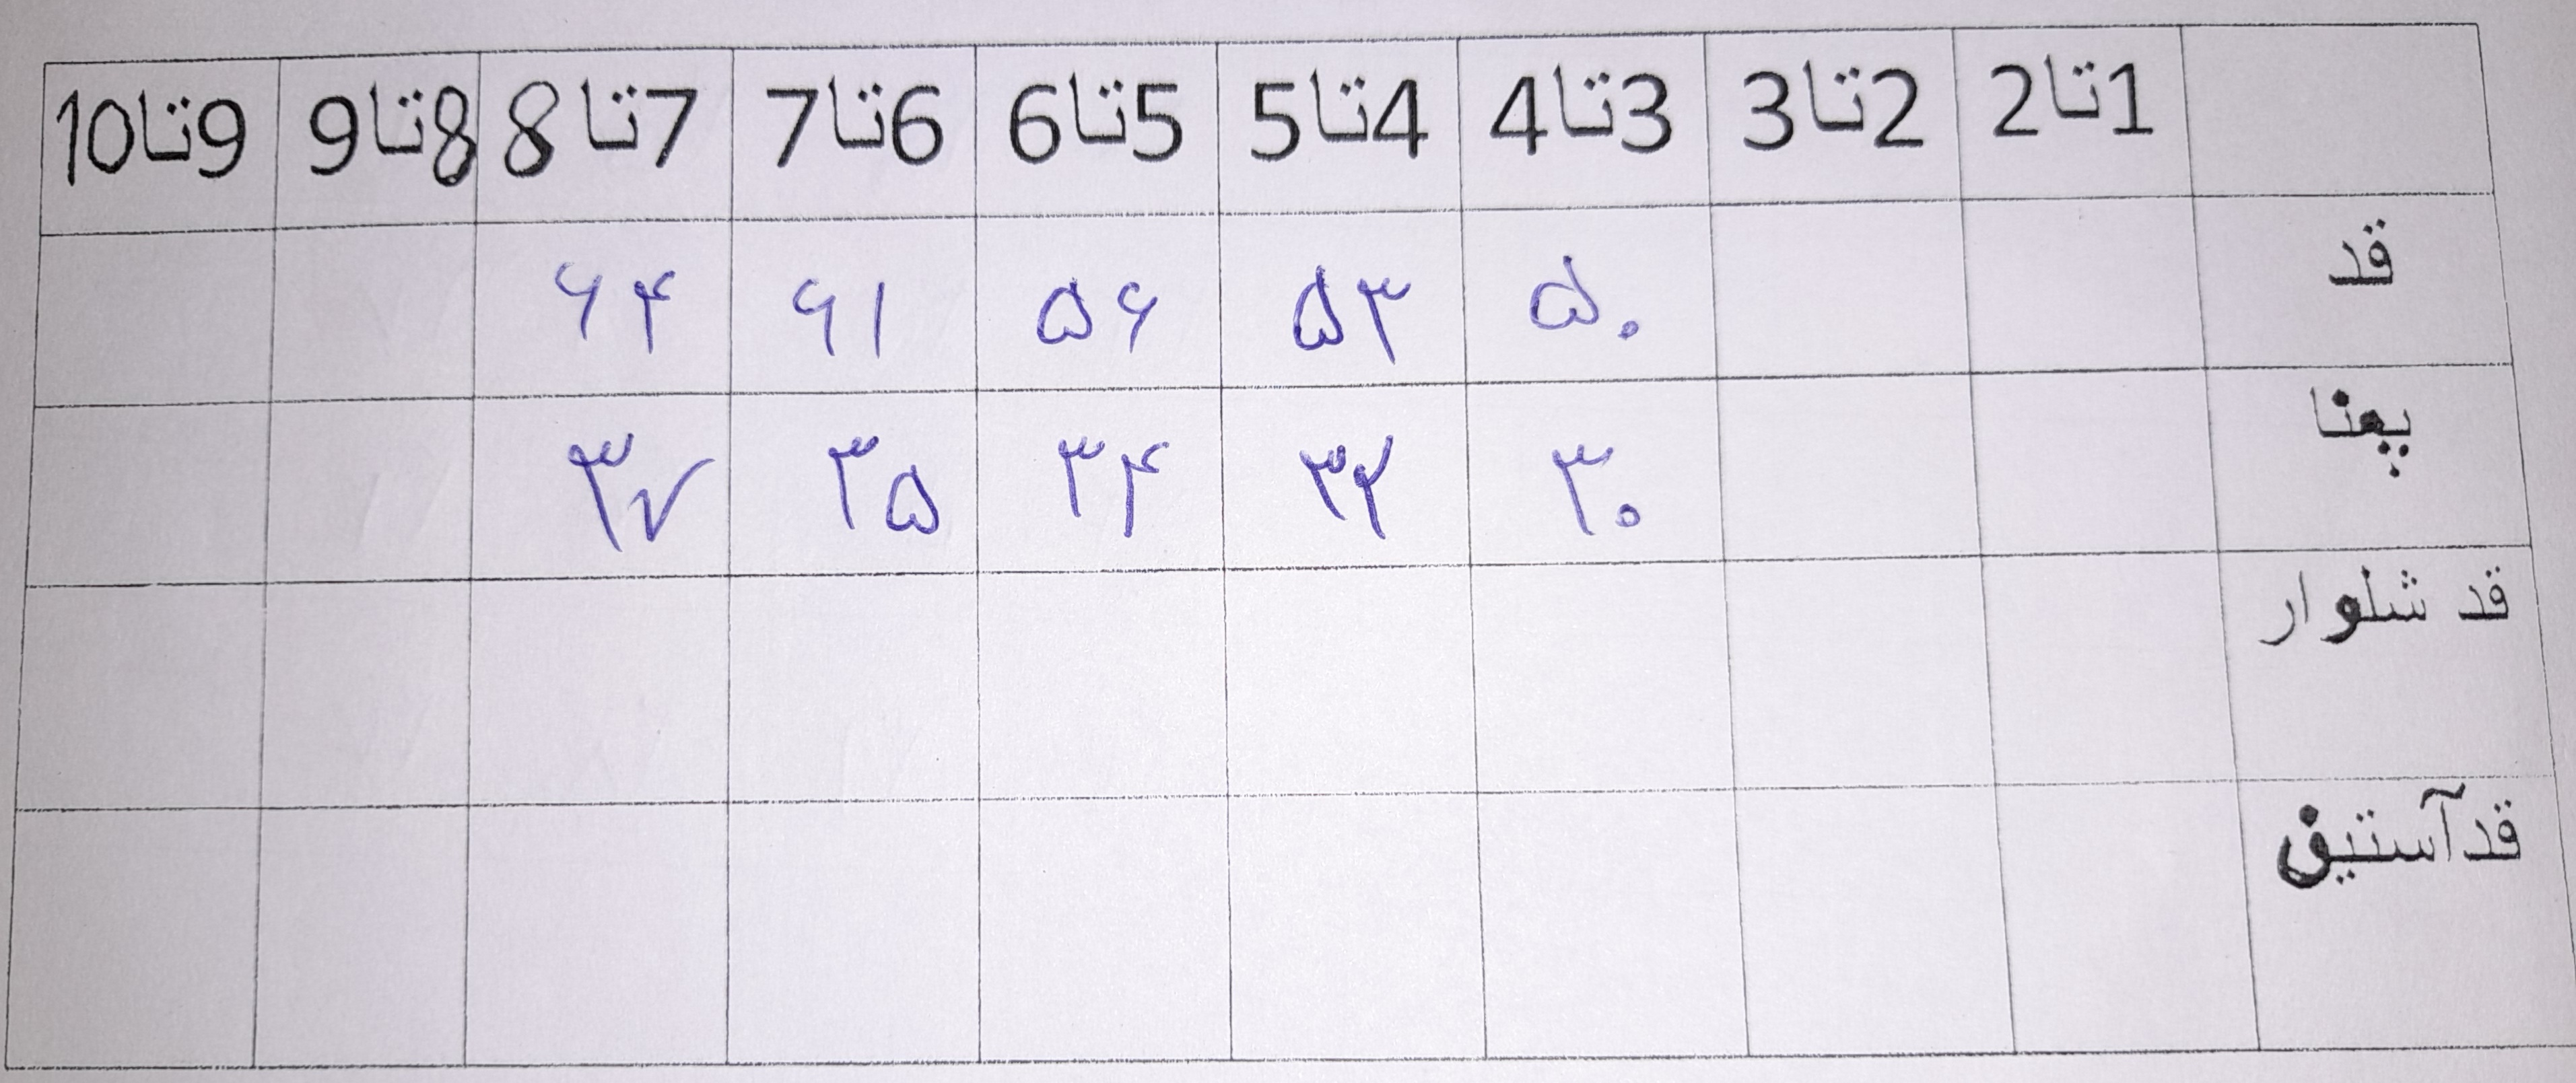 1تا2 2تا3 3تا4 4تا5 5تا6 6تا7 7تا8 8تا9 9تا10
قد ۵۰ ۵۳ ۵۶ ۶۱ ۶۴
پهنا ۳۰ ۳۲ ۳۴ ۳۵ ۳۷
قد شلوار
قدآستین